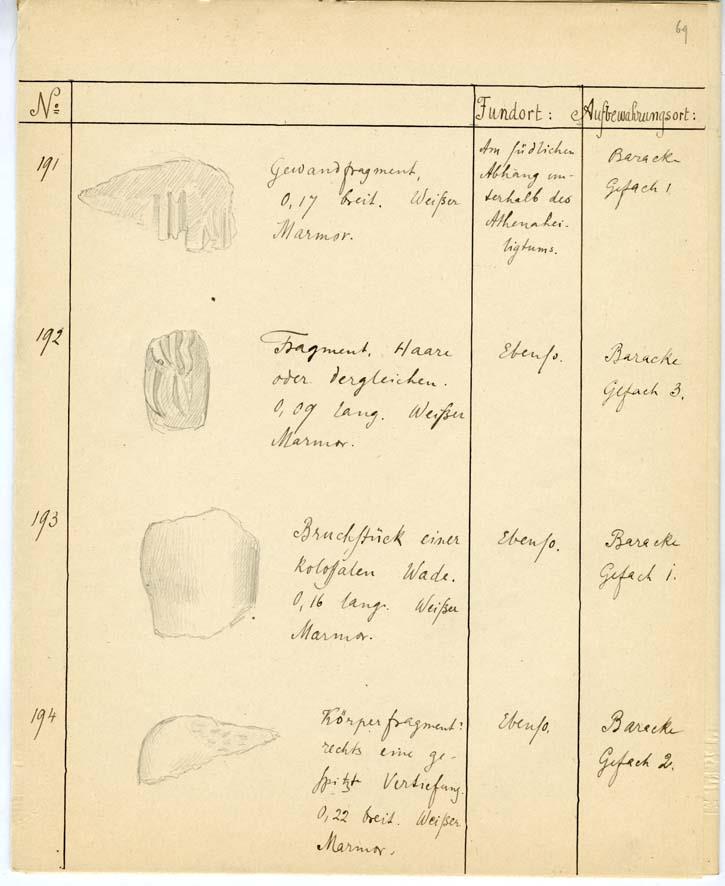 69
Nº
Fundort:
Aufbewahrungsort:
191
Gewandfragment,
0,17 breit. Weißer
Marmor.
Am südlichen
Abhang un-
terhalb des
Athenahei-
ligtums.
Baracke
Gefach 1
192
Fragment, Haare
oder dergleichen.
0,09 lang. Weißer
Marmor.
Ebenso.
Baracke
Gefach 3.
193
Bruchstück einer
kolossalen Wade.
0,16 lang. Weißer
Marmor.
Ebenso.
Baracke
Gefach 1.
194
Körperfragment:
rechts eine ge-
spitzt Vertiefung.
0,22 breit. Weißer
Marmor.
Ebenso.
Baracke
Gefach 2.